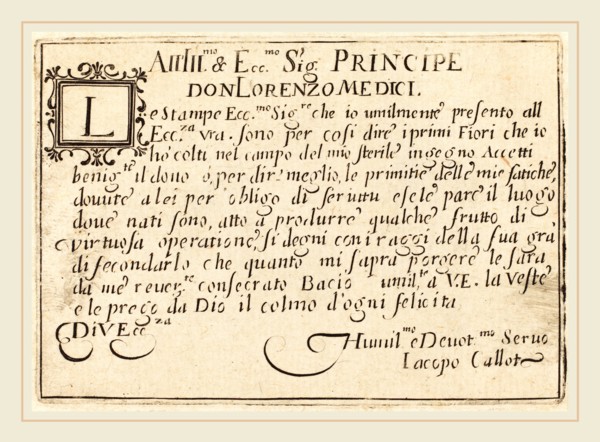 All Ill.mo & Ecc.mo Sig. PRINCIPE
DON LORENZO MEDICI.
L
e Stampe Ecc.mo Sig.re che io umilmente presento all
Ecc.za vra. sono per cosi dire i primi Fiori che io
ho colti nel campo del mio sterile ingegno Accetti
benig.te il dono o, per dir meglio, le primitie delle mie fatiche,
dovute a lei per obligo di seruitu e se le pare il luogo
doue nati sono, atto a produrre qualche frutto di
virtuosa operatione, si degni con i raggi della sua gra
di fecondarlo che quanto mi sapra porgere le sara
da me reuer.te consecrato Bacio umil.te a V.E. la veste
e le prego da Dio il colmo d'ogni felicita
Di V Ecc.za
Humil.mo e Deuot.mo Seruo
Iacopo Callot